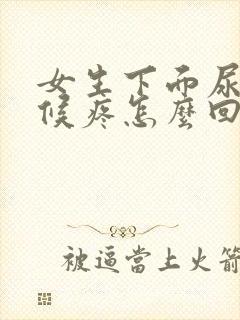 女生下面尿
候疼怎麼回
被逼當上火箭